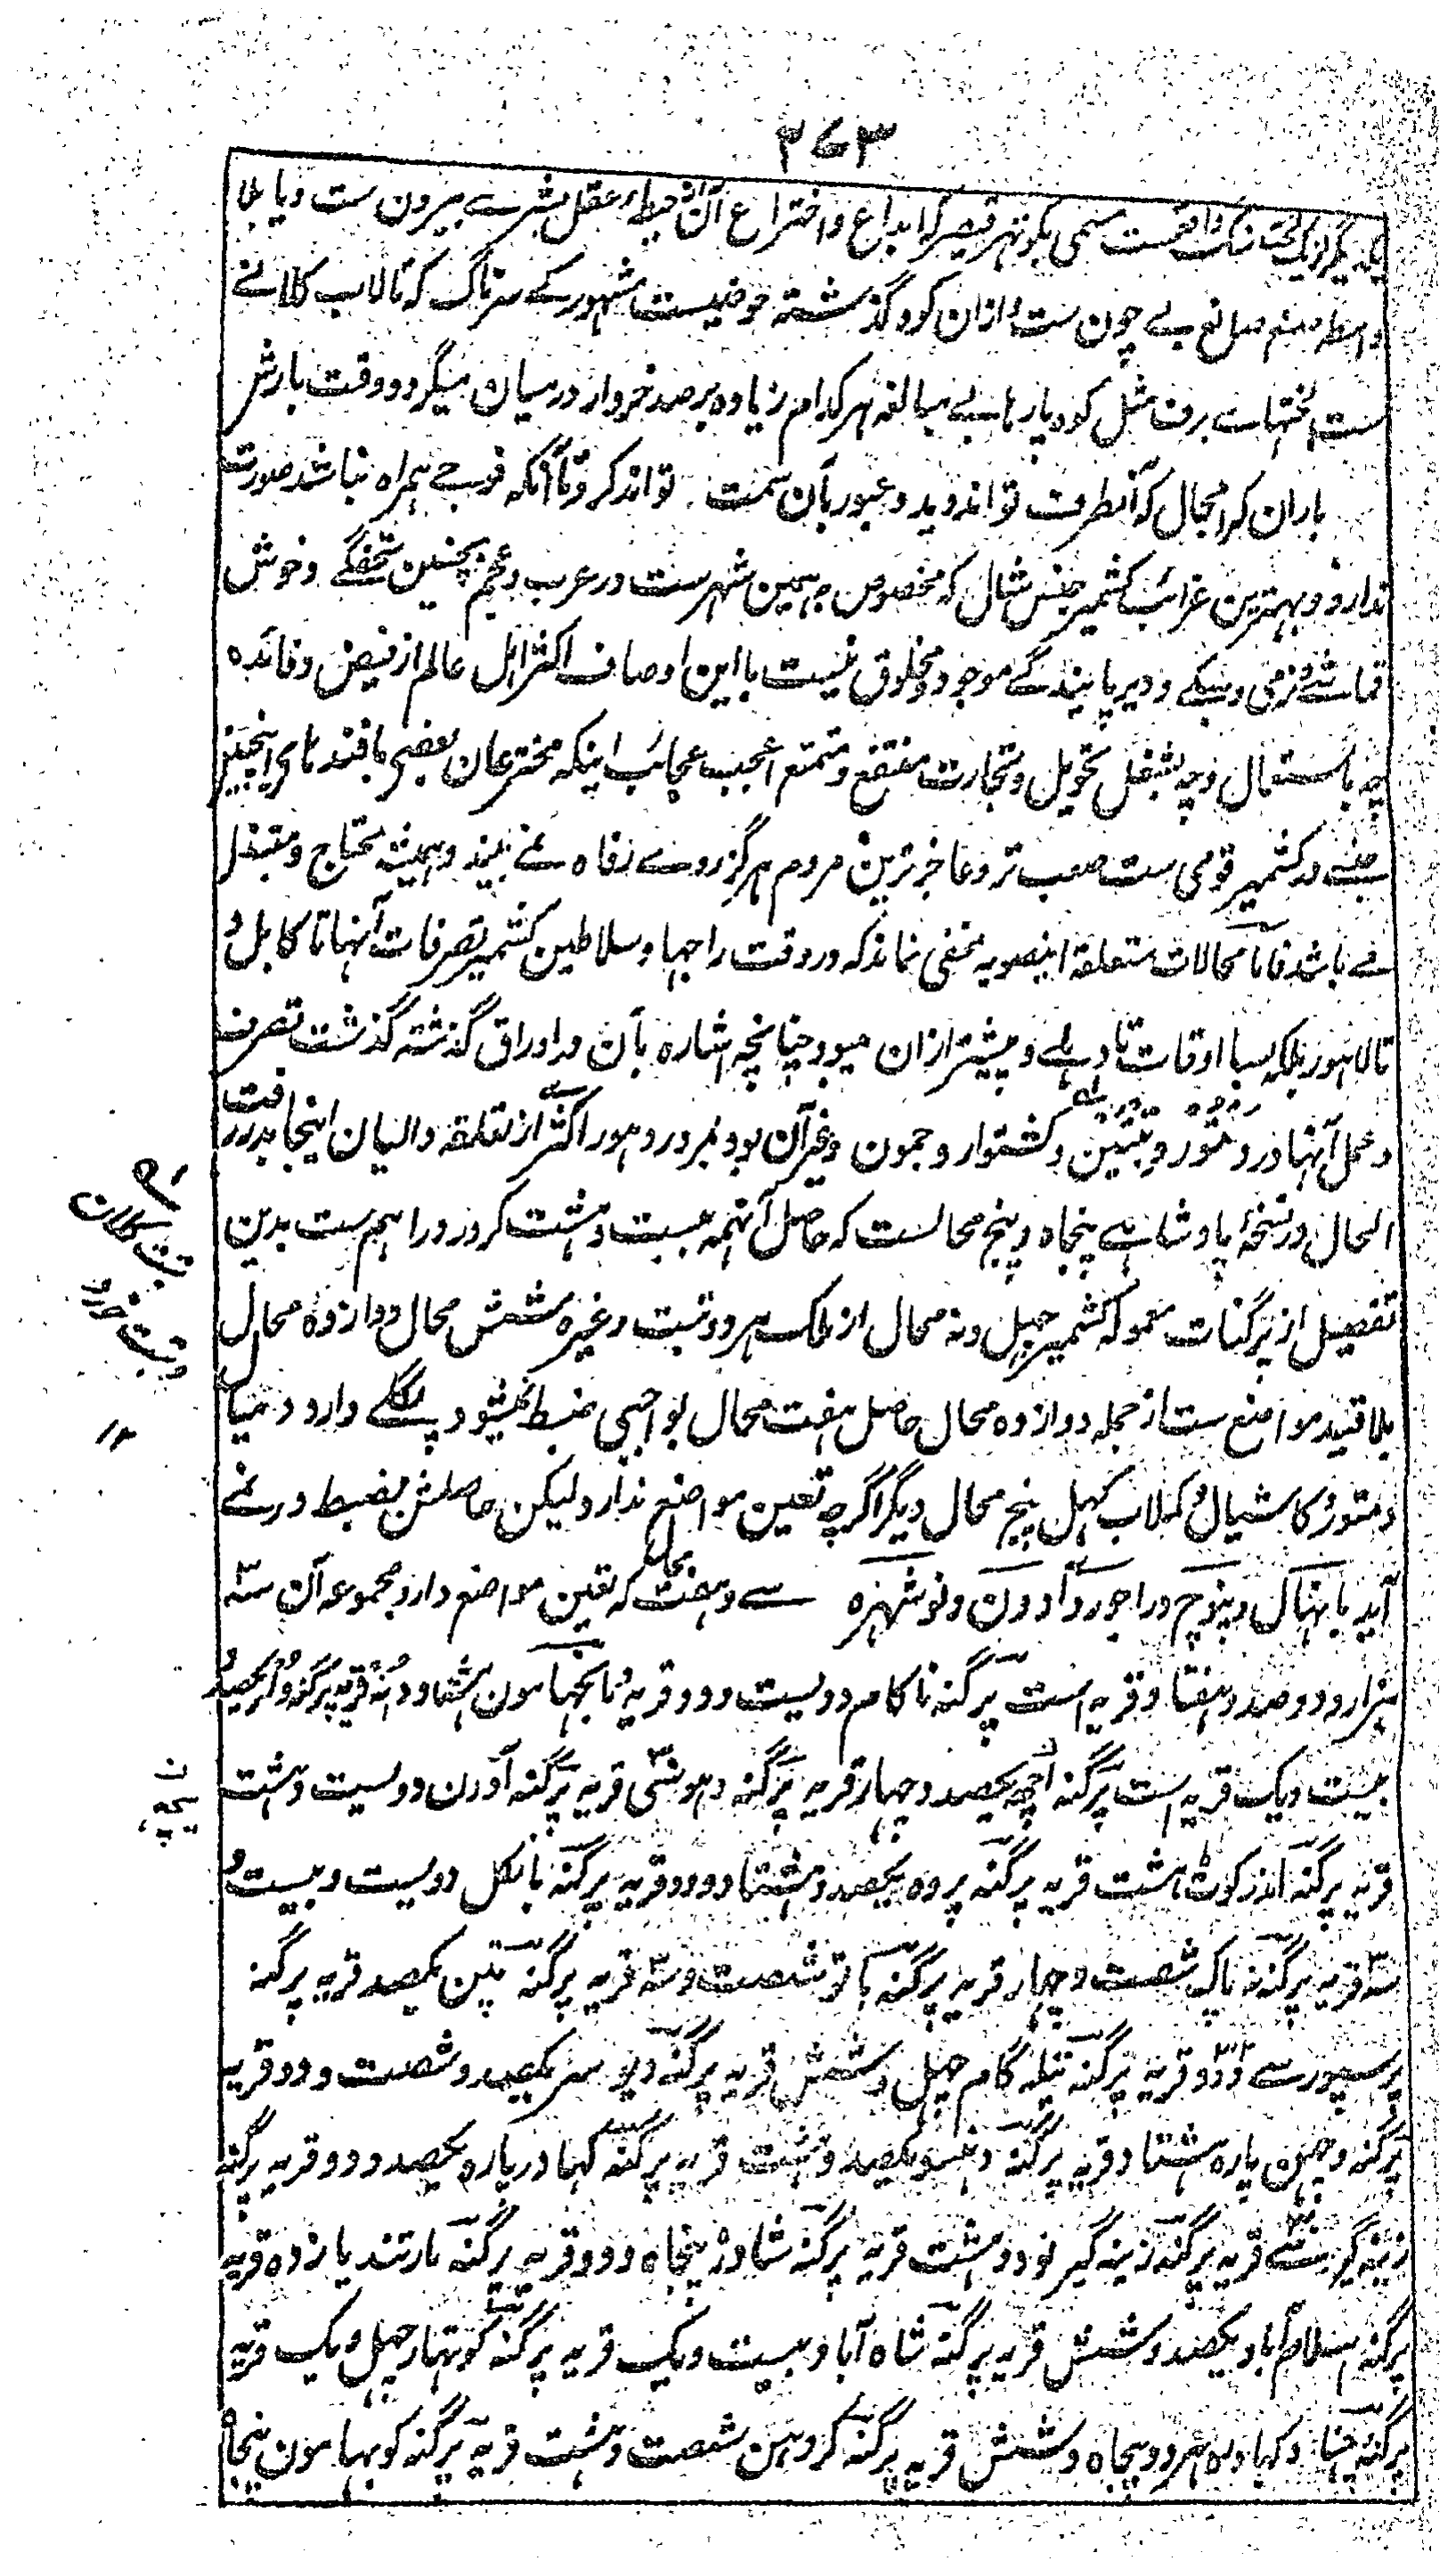 ۳۷۳
یکدیگر از یک لخت سنگ واقعست مسمی بکوتهر قیصر که ابداع و اختراع آن از حیطۀ عقل بشرے بیرون ست و یا بلا
واسطه صنع صانع بے چون ست و ازان کوه گذشته حوضیست مشهور کے سرناگ که تالاب کلانے
ست لختهاے برف مثل کوه پارها بے مبالغه هر کدام زیاده بر صد خروار درمیان میگردد و وقت بارش
باران کرا مجال که آنطرف تواند دید و عبور بآن سمت تواند کرد تا آنکه فوجے همراه نباشد صورت
ندارد و بهترین غرائب کشمیر جنس شال که مخصوص بهمین شهرست در عرب و عجم بچنین تحفگے و خوش
قماشے و نرمی و سبکے و دیر پایندگے موجود و مخلوق نیست با این اوصاف اکثر اهل عالم از فیض و فائده
چه باستعمال و چه بشغل تحویل و تجارت منتفع و متمتع اعجب عجائب اینکه مخترعان یعضے بافندهاے اینچنین
جنسے در کشمیر قومی ست صعب تر و عاجز ترین مردم هرگز روے رفاه نمے بینند و همیشه محتاج و مبتذل
مے باشد فاما محالات متعلقه اینصوبه مخفی نماند که در وقت راجها و سلاطین کشمیر تصرفات آنها تا کابل و
تا لاهور بلکه بسا اوقات تا دهلے و پیشتر ازان میبود چنانچه اشاره بآن در اوراق گذشته گذشت تصرف
و عمل آنها در و متور و تبتین و کشتوار و جمون و غیر آن بود بمرور دهور اکثرے از تعلقه والیان اینجا بدر رفت
الحال در نسخۀ پادشاهے پنجاه و پنج محالست که حاصل آنهمه بیست و هشت کرور دراهم ست بدین
تفصیل از پرگنات معموله کشمیر چهل و نه محال از ملک هر دو تبت و غیره شش محال دوازده محال
بلا قید مواضع ست از جمله دوازده محال حاصل هفت محال بواجبی ضبط نمیشود پکلے دارو دمنیا
دمتور کاشیال و کملاب کهل پنج محال دیگر اگرچه تعین مواضع ندارد لیکن حاصلش بضبط در نمے
آید بانهال و پنوچ و راجور و آدون و نوشهره سے و هفت محال که تعین مواضع دارد مجموعه آن سه
هزار و دو صد و هفتاد قریه است پرگنه ناکام دویست و دو قریه ناپجهامون هشتاد و نه قریه پرگنه ولر یکصد و
بیست و یک قریه است پرگنه اچھ یکصد و چهار قریه پرگنه دهونشی قریه پرگنه آدرن دویست و هشت
قریه پرگنه اندرکوٹ هشت قریه پرگنه پروه یکصد و هشتاد و دو قریه پرگنه بانگل دویست و بیست و
سه قریه پرگنه ناپک شصت و چهار قریه پرگنه باتو شصت و سه قریه پرگنه پتن یکصد قریه پرگنه
پرسپور سے و دو قریه پرگنه تیله گام چهل و شش قریه پرگنه دیوسر یکصد و شصت و دو قریه
پرگنه وچهن پاره هشتاد قریه پرگنه دنسو یکصد و هشت قریه پرگنه کهادرپاره یکصد و دو قریه پرگنه
زینه گیر سے قریه پرگنه زینه گیر نود و هشت قریه پرگنه شاوره پنجاه و دو قریه پرگنه مارتند یازده قریه
پرگنه اسلام آباد یکصد و شش قریه پرگنه شاه آباد بیست و یک قریه پرگنه کوتهار چهل و یک قریه
پرگنه و پنجاه و شش قریه پرگنه کروهن شصت و هشت قریه پرگنه کوبهامون پنجاه
تبت کلان
و تبت خورد
۱۲